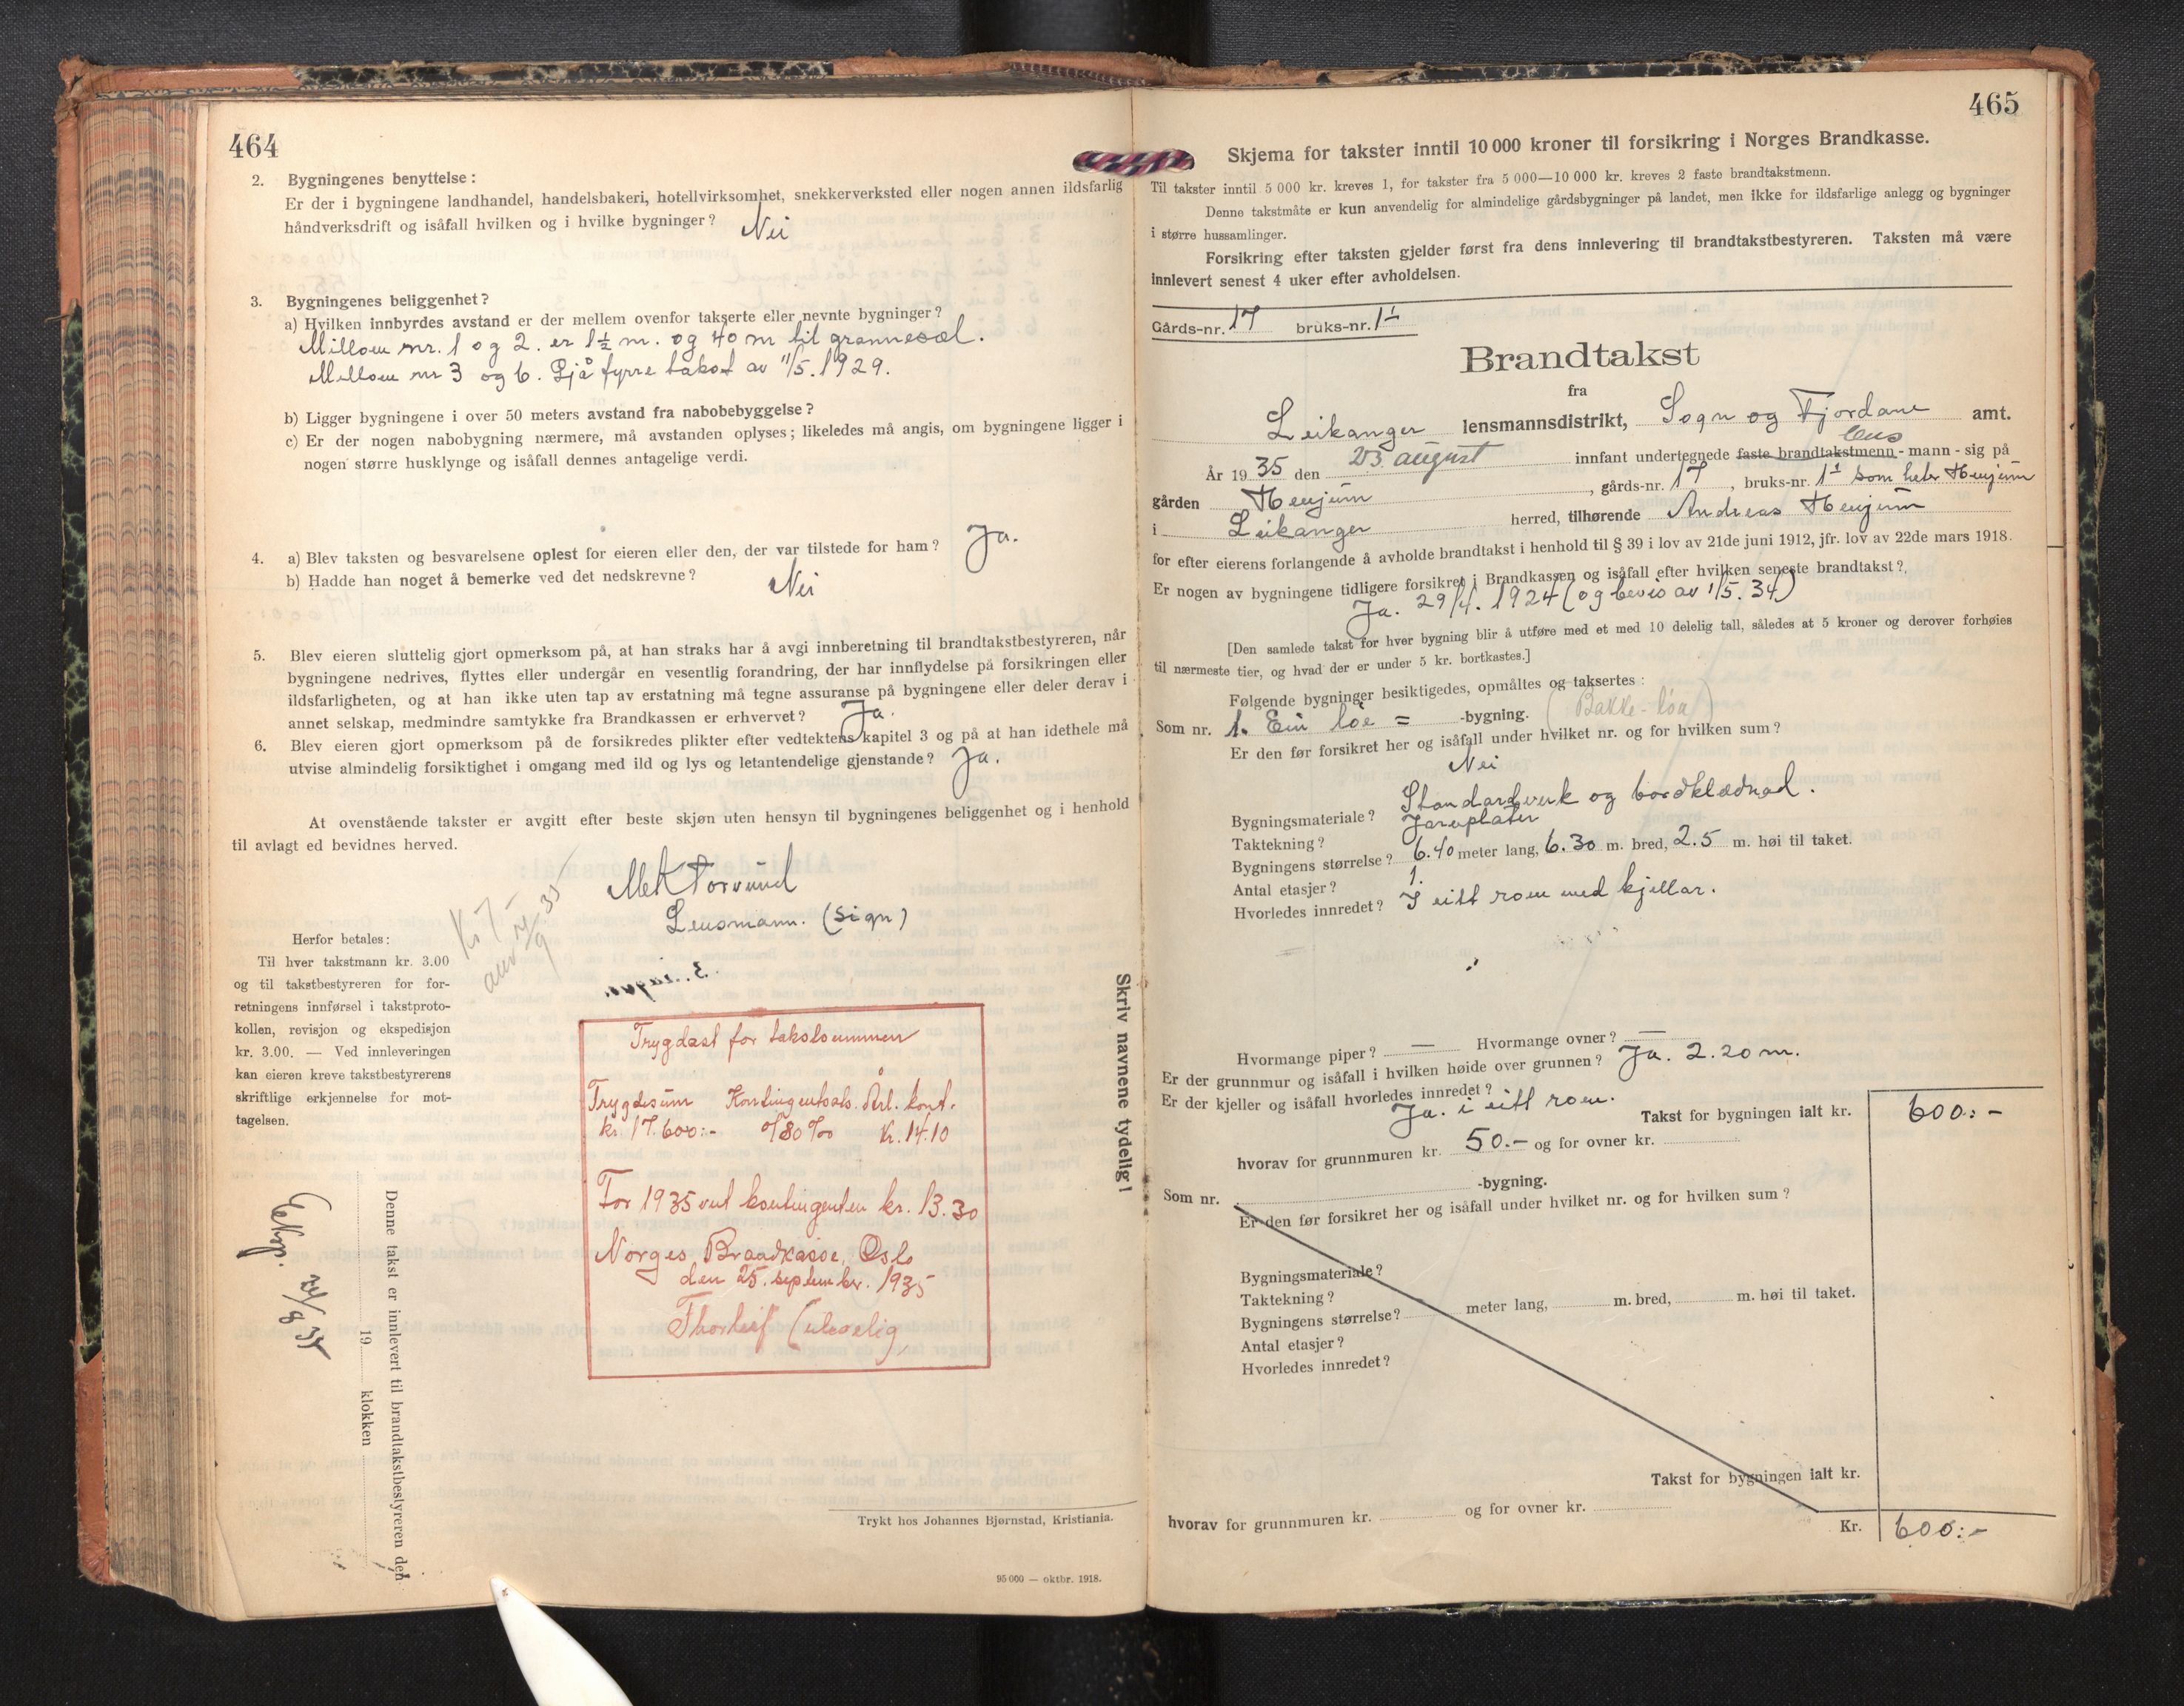 464
2. Bygningenes benyttelse:
Er der i bygningene landhandel, handelsbakeri, hotellvirksomhet, snekkerverksted eller nogen annen ildsfarlig
håndverksdrift og isåfall hvilken og i hvilke bygninger? Nei
3. Bygningenes beliggenhet?
a) Hvilken innbyrdes avstand er der mellem ovenfor takserte eller nevnte bygninger?
Millom nr. 1 og 2. er 1½ m. og 40 m til grannesæl.
Millom nr 3 og 6. Sjå fyrre takst av 11/5. 1929.
b) Ligger bygningene i over 50 meters avstand fra nabobebyggelse?
c) Er der nogen nabobygning nærmere, må avstanden oplyses; likeledes må angis, om bygningene ligger i
nogen større husklynge og isåfall dennes antagelige verdi.
4. a) Blev taksten og besvarelsene oplest for eieren eller den, der var tilstede for ham? Ja.
b) Hadde han noget å bemerke ved det nedskrevne? Nei
5. Blev eieren sluttelig gjort opmerksom på, at han straks har å avgi innberetning til brandtakstbestyreren, når
bygningene nedrives, flyttes eller undergår en vesentlig forandring, der har innflydelse på forsikringen eller
ildsfarligheten, og at han ikke uten tap av erstatning må tegne assuranse på bygningene eller deler derav i
annet selskap, medmindre samtykke fra Brandkassen er erhvervet? Ja.
6. Blev eieren gjort opmerksom på de forsikredes plikter efter vedtektens kapitel 3 og på at han idethele må
utvise almindelig forsiktighet i omgang med ild og lys og letantendelige gjenstande? Ja.
At ovenstående takster er avgitt efter beste skjøn uten hensyn til bygningenes beliggenhet og i henhold
til avlagt ed bevidnes herved.
Lensmann. (sign)
Kr 7.-
24/9 35
Herfor betales:
Til hver takstmann kr. 3.00
og til takstbestyreren for for-
retningens innførsel i takstproto-
kollen, revisjon og ekspedisjon
kr. 3.00. — Ved innleveringen
kan eieren kreve takstbestyrerens
skriftlige erkjennelse for mot-
tagelsen.
Trygdast for takstsummen
Trygdesum Kontingentsats. Årl. kont.
kr. 17.600:- 0/80 ‰ kr. 14.10
For 1935 vert kontingenten kr. 13.30
Norges Brandkasse, Oslo
den 25. september. 1935
Denne takst er innlevert til brandtakstbestyreren den
19 klokken
Skriv navnene tydelig!
Trykt hos Johannes Bjørnstad, Kristiania.
95 000 — oktbr. 1918.
465
Skjema for takster inntil 10 000 kroner til forsikring i Norges Brandkasse.
Til takster inntil 5 000 kr. kreves 1, for takster fra 5 000—10 000 kr. kreves 2 faste brandtakstmenn.
Denne takstmåte er kun anvendelig for almindelige gårdsbygninger på landet, men ikke for ildsfarlige anlegg og bygninger
i større hussamlinger.
Forsikring efter taksten gjelder først fra dens innlevering til brandtakstbestyreren. Taksten må være
innlevert senest 4 uker efter avholdelsen.
Gårds-nr. 17 bruks-nr. 1
Brandtakst
fra
Leikanger lensmannsdistrikt, Sogn og Fjordane amt.
lens
År 1935 den 23 august innfant undertegnede faste brandtakstmenn - mann - sig på
gården Henjum, gårds-nr. 17, bruks-nr. 1 som heter Henjum
i Leikanger herred, tilhørende Andreas Henjum
for efter eierens forlangende å avholde brandtakst i henhold til § 39 i lov av 21de juni 1912, jfr. lov av 22de mars 1918.
Er nogen av bygningene tidligere forsikret i Brandkassen og isåfall efter hvilken seneste brandtakst?
Ja. 29/4. 1924 (og bevis av 1/5. 34)
[Den samlede takst for hver bygning blir å utføre med et med 10 delelig tall, således at 5 kroner og derover forhøies
til nærmeste tier, og hvad der er under 5 kr. bortkastes.]
Følgende bygninger besiktigedes, opmåltes og taksertes:
Som nr. 1. Ein løe = -bygning. (Bakke-løa)
Er den før forsikret her og isåfall under hvilket nr. og for hvilken sum?
Nei
Bygningsmateriale? Standardverk og bordklædnad.
Taktekning? Jarnplater
Bygningens størrelse? 6.40 meter lang, 6.30 m. bred, 2.5 m. høi til taket.
Antal etasjer? 1.
Hvorledes innredet? I eitt rom med kjellar.
Hvormange piper? — Hvormange ovner? —
Er der grunnmur og isåfall i hvilken høide over grunnen? Ja. 2.20 m.
Er der kjeller og isåfall hvorledes innredet?
Ja. i eitt rom.
Takst for bygningen ialt kr. 600:-
hvorav for grunnmuren kr. 50.- og for ovner kr.
Som nr. -bygning.
Er den før forsikret her og isåfall under hvilket nr. og for hvilken sum?
Bygningsmateriale?
Taktekning?
Bygningens størrelse? meter lang, m. bred, m. høi til taket.
Antal etasjer?
Hvorledes innredet?
Takst for bygningen ialt kr.
hvorav for grunnmuren kr. og for ovner kr.
Kr. 600:-